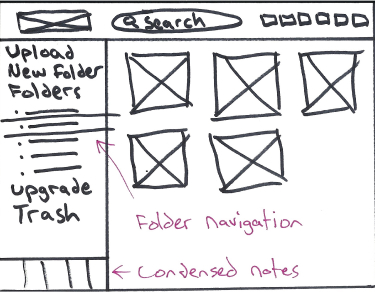 Search
Upload
New Folder
Folders
Upgrade
Trash
Folder navigation
Condensed notes